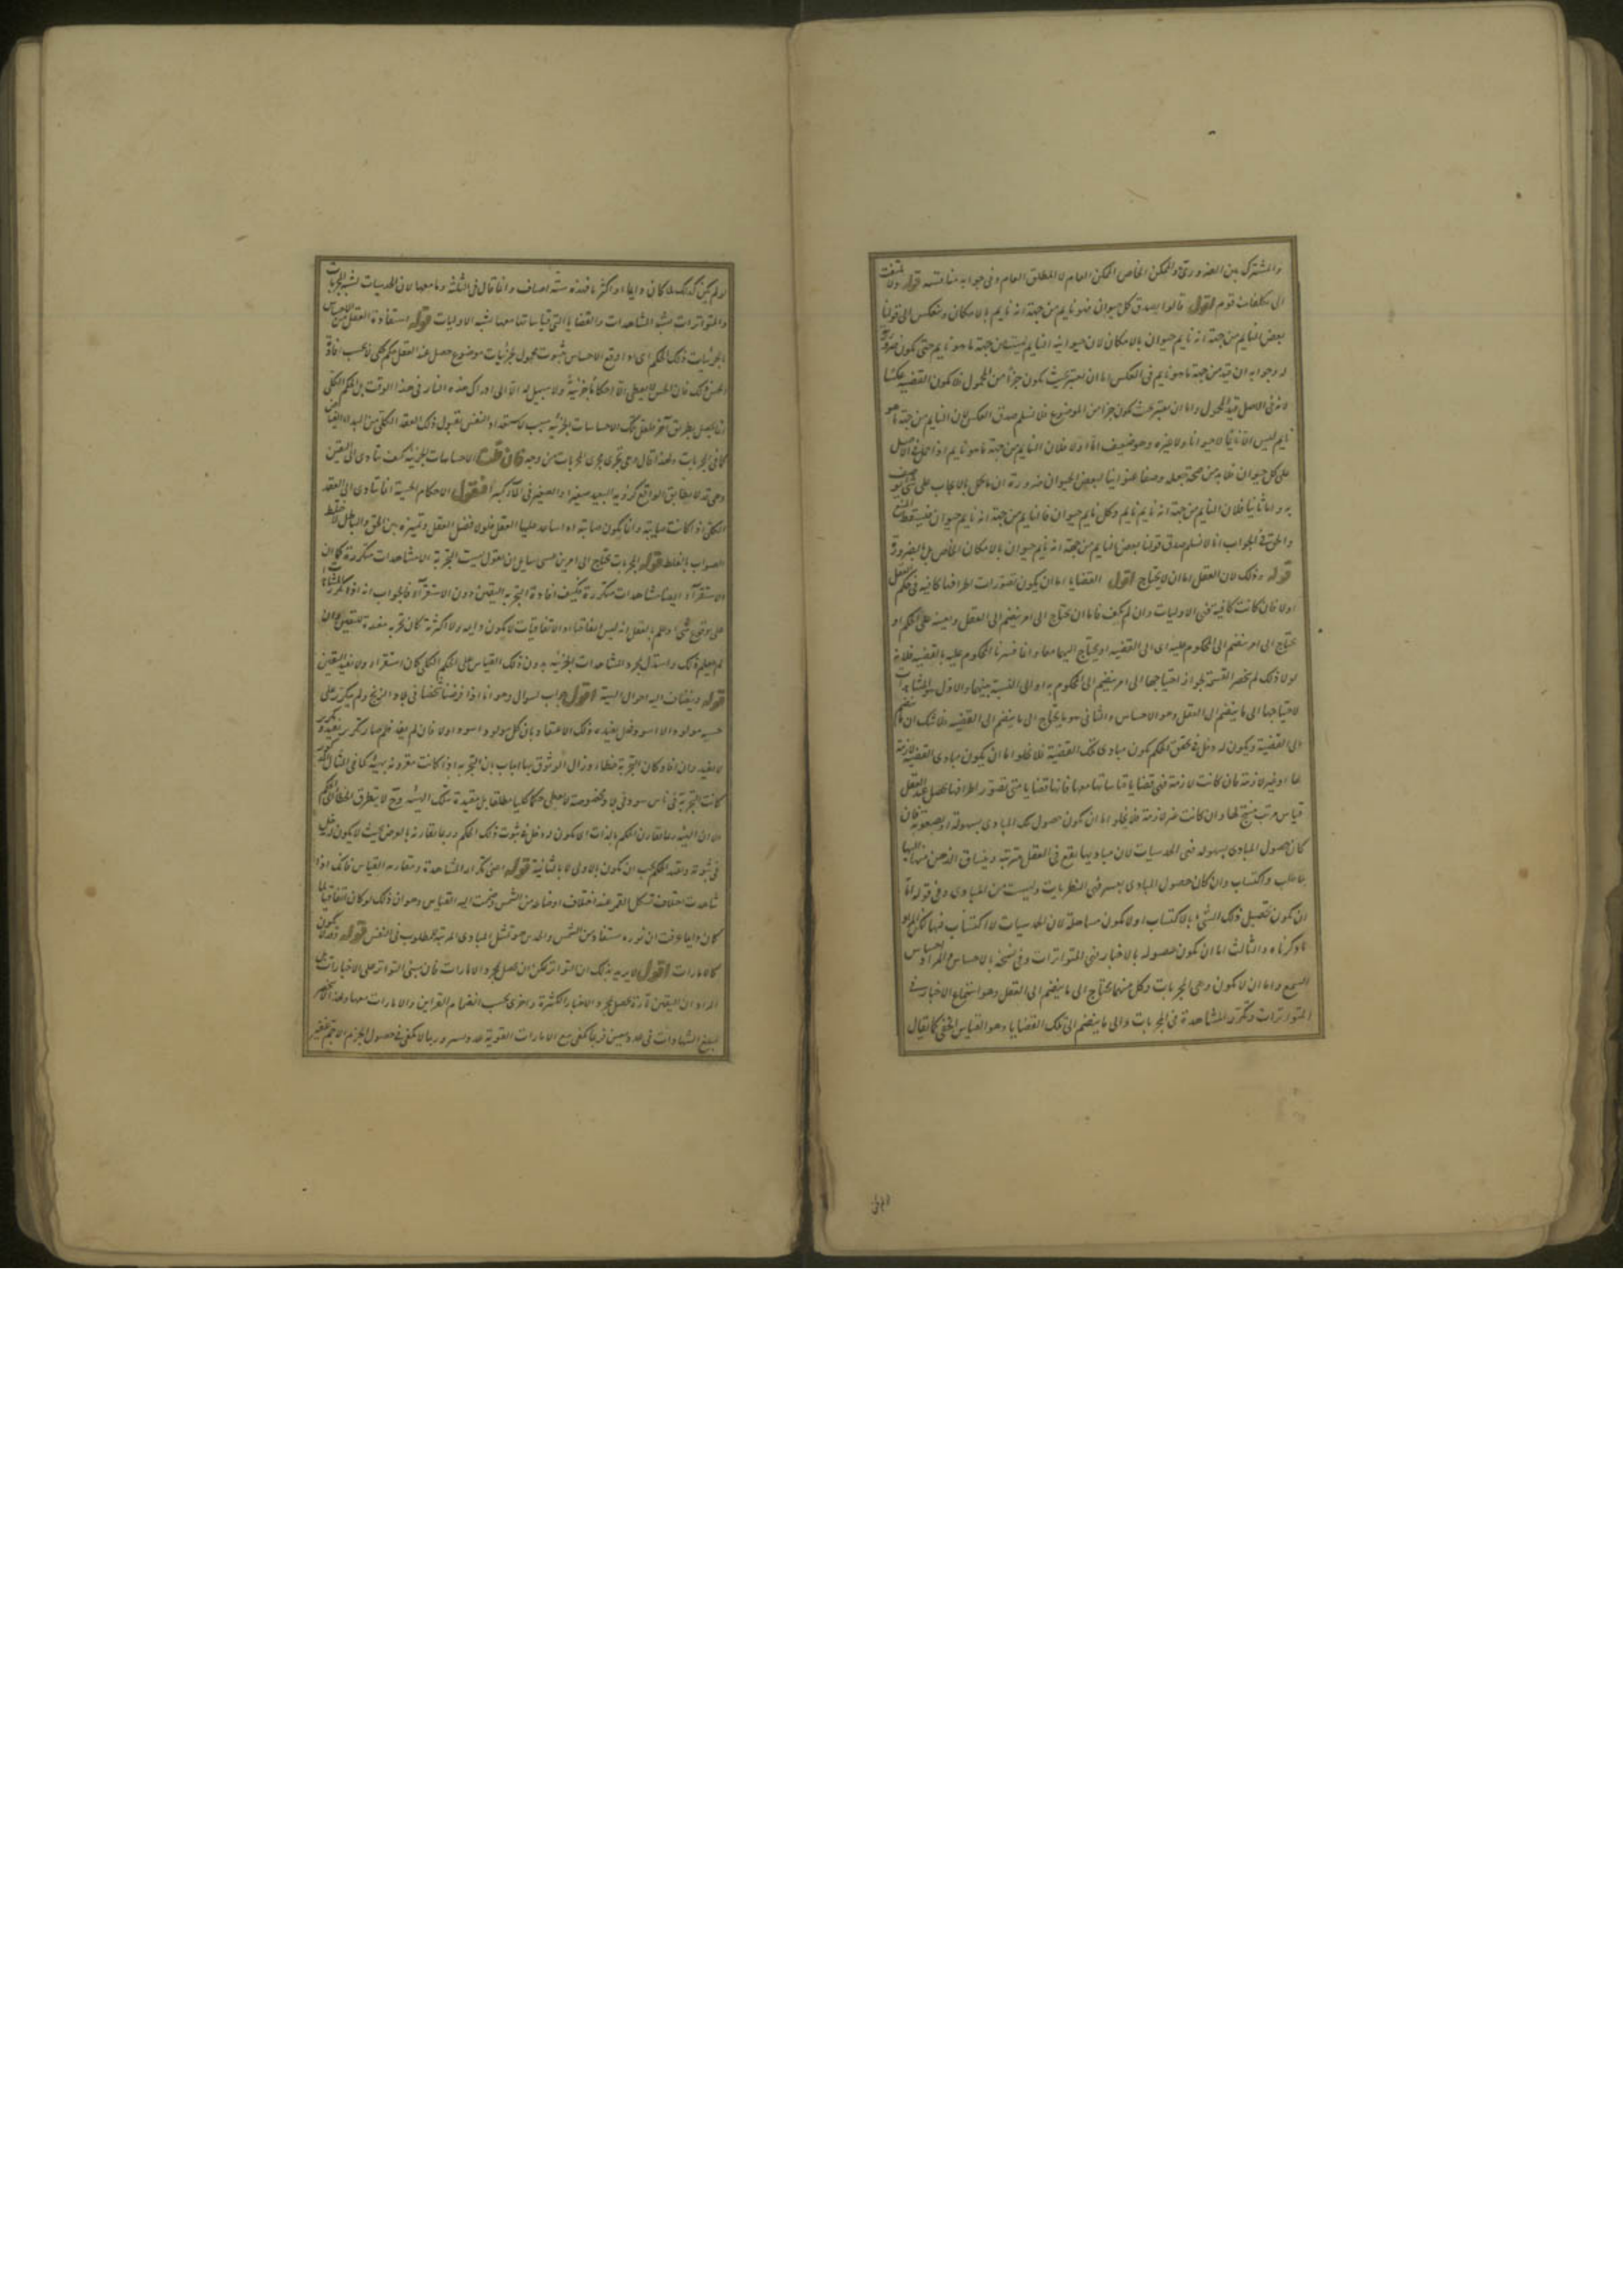 والمشترك بين الضروري والممكن الخاص الممكن العام لا المطلق العام وفي جوابه مناقشة قوله ولا يلتفت
الى تكلفات قوم اقول قالوا يصدق كل حيوان فهو نايم من جهة انه نايم بالامكان وينعكس الى قولنا
بعض النايم من جهة انه نايم حيوان بالامكان لان حيوانية النايم ليست من جهة ما هو نايم حتى يكون ضرورية
له وجوابه ان قيد من جهة ما هو نايم في العكس اما ان يعتبر بحيث يكون جزأ من المحمول فلا يكون القضية عكسا
لانه في الاصل قيد المحول واما ان يعتبر بحيث يكون جزأ من الموضوع فلا نسلم صدق العكس لان النايم من جهة ما هو
نايم ليس الا نايما لا حيوانا ولا غيره وهو ضعيف اما اولا فلان النايم من جهة ما هو نايم اذا حمل في الاصل
على كل حيوان فلا بد من صحة جعله وصفا عنوانيا لبعض الحيوان ضرورة ان ما يحمل بالايجاب على شئ يوصف
به واما ثانيا فلان النايم من جهة انه نايم نايم وكل نايم حيوان فالنايم من جهة انه نايم حيوان
والحق في الجواب انا لا نسلم صدق قولنا بعض النايم من جهة انه نايم حيوان بالامكان الخاص بل بالضرورة
قوله وذلك لان العقل اما ان لا يحتاج اقول القضايا اما ان يكون تصورات اطرافها كافية في حكم العقل
اولا فان كانت كافية فهي الاوليات وان لم يكف فاما ان يحتاج الى امر ينضم الى العقل ويعينه على الحكم او
يحتاج الى امر ينضم الى المحكوم عليه اى الى القضية او يحتاج اليهما معا وانما فسرنا المحكوم عليه بالقضية فلانه
لولا ذلك لم يحصر القسمة لجواز احتياجها الى امر ينضم الى المحكوم به او الى النسبة بينهما والاول هو المشاهدات
لاحتياجها الى ما ينضم الى العقل وهو الاحساس والثاني هو ما يحتاج الى ما ينضم الى القضية فلا شك ان ما ينضم
الى القضية ويكون له دخل في تحقق الحكم يكون مبادى تلك القضية فلا يخلو اما ان يكون مبادى القضية لازمة
لها او غير لازمة فان كانت لازمة فهي قضايا قياساتها معها فانها قضايا متى تصور اطرافها يحصل عند العقل
قياس مرتب منتج لها وان كانت غير لازمة فلا يخلو اما ان يكون حصول تلك المبادى بسهولة او بصعوبة فان
كان حصول المبادى بسهولة فهي الحدسيات لان مباديها يقع في العقل مترتبة وينساق الذهن منها اليها
بلا طلب واكتساب وان كان حصول المبادى بعسر فهي النظريات وليست من المبادى وفي قوله اما
ان يكون تحصيل ذلك الشئ بالاكتساب اولا يكون مساهلة لان الحدسيات لا اكتساب فيها
ما ذكرناه والثالث اما ان يكون حصوله بالاخبار فهي المتواترات وفي نسخة بالاحساس والمراد احساس
السمع واما ان لا يكون وهي المجربات وكل منهما يحتاج الى ما ينضم الى العقل وهو استماع الاخبار في
المتواترات وتكرر المشاهدة في المجربات والى ما ينضم الى تلك القضايا وهو القياس الخفي كما يقال
لو لم يكن كذلك لما كان دايما او اكثريا فهذه ستة اصناف وانما قال في الثالث وما معها لان الحدسيات يشبه المجربات
والمتواترات يشبه المشاهدات والقضايا التي قياساتها معها يشبه الاوليات قوله استفادة العقل
بالجزئيات ذلك الحكم اى اذا وقع الاحساس بثبوت محمول لجزئيات موضوع حصل عند العقل حكم كلي لا بحسب افادة
الحس ذلك فان الحس لا يعطي الا احكاما جزئية ولا سبيل له الا الى ادراك هذه النار في هذا الوقت بل الحكم الكلي
انما يحصل بطريق آخر فلعل تلك الاحساسات الجزئية سبب لاستعداد النفس لقبول ذلك العقد الكلي من المبدأ الفياض
كما في المجربات ولهذا قال وهي تجري مجرى المجربات من وجه فان قلت الاحساسات الجزئية كيف يتادى الى اليقين
وهي قد لا يطابق الواقع كرؤية البعيد صغيرا والصغير في الماء كبيرا فنقول الاحكام الحسية انما يتادى الى العقد
الكلي اذا كانت صايبة وانما يكون صايبة اذا ساعد عليها العقل فلولا فضل العقل وتمييزه بين الحق والباطل لاختلط
الصواب بالغلط قوله المجربات يحتاج الى امرين لسايل ان يقول ليست التجربة الا مشاهدات متكررة كما ان
الاستقراء ايضا مشاهدات متكررة فكيف افادة التجربة اليقين دون الاستقراء فالجواب انه اذا تكرر المشاهدات
على وقوع شئ وعلم بالعقل انه ليس اتفاقيا اذ الاتفاقيات لا يكون دايمة ولا اكثرية كان تجربة مفيدة لليقين وان
لم يعلم ذلك واستدل بمجرد المشاهدات الجزئية بدون ذلك القياس على الحكم الكلي كان استقراء ولا يفيد اليقين
قوله وينضاف اليه احوال الهيئة اقول جواب لسوال وهو انا اذا فرضنا شخصا في بلاد الزنج ولم يتكرر على
حسه مولود الا اسود فهل يفيده ذلك الاعتقاد بان كل مولود اسود اولا فان لم يفد فلم صار تكرر يفيد وتكرر
لا يفيد وان افاد كان التجربة خطاء وزال الوثوق بها اجاب بان التجربة اذا كانت مقرونة بهيئة كما في المثال
كانت التجربة في ناس سود في بلاد مخصوصة لا يعطي حكما كليا مطلقا بل مقيدة بتلك الهيئة وح لا يتطرق الخطأ الى الحكم
ولان الهيئة ربما يقارن الحكم بالذات اى يكون له دخل في ثبوت ذلك الحكم وربما يقارنه بالعرض بحيث لا يكون له دخل
في ثبوته وتقيد الحكم يجب ان يكون بالاولى لا بالثانية قوله اعني تكرار المشاهدة ومقارنة القياس فانك اذا
شاهدت اختلاف تشكل القمر عند اختلاف اوضاعه من الشمس وتمت اليه القياس وهو ان ذلك لو كان اتفاقيا لما
كان دايما عرفت ان نوره مستفاد من الشمس والحدس هو تمثل المبادى المرتبة للمطلوب في النفس قوله وقد يكون
كالامارات اقول لا يريد بذلك ان التواتر يمكن ان يحصل بمجرد الامارات فان مبنى التواتر على الاخبارات بل
المراد ان اليقين تارة يحصل بمجرد الاخبار الكثيرة واخرى بحسب انضمام القراين والامارات معها
لمبلغ الشهادات في عدد معين فربما يكفي مع الامارات القوية عدد يسير وربما لا يكفي في حصول الجزم